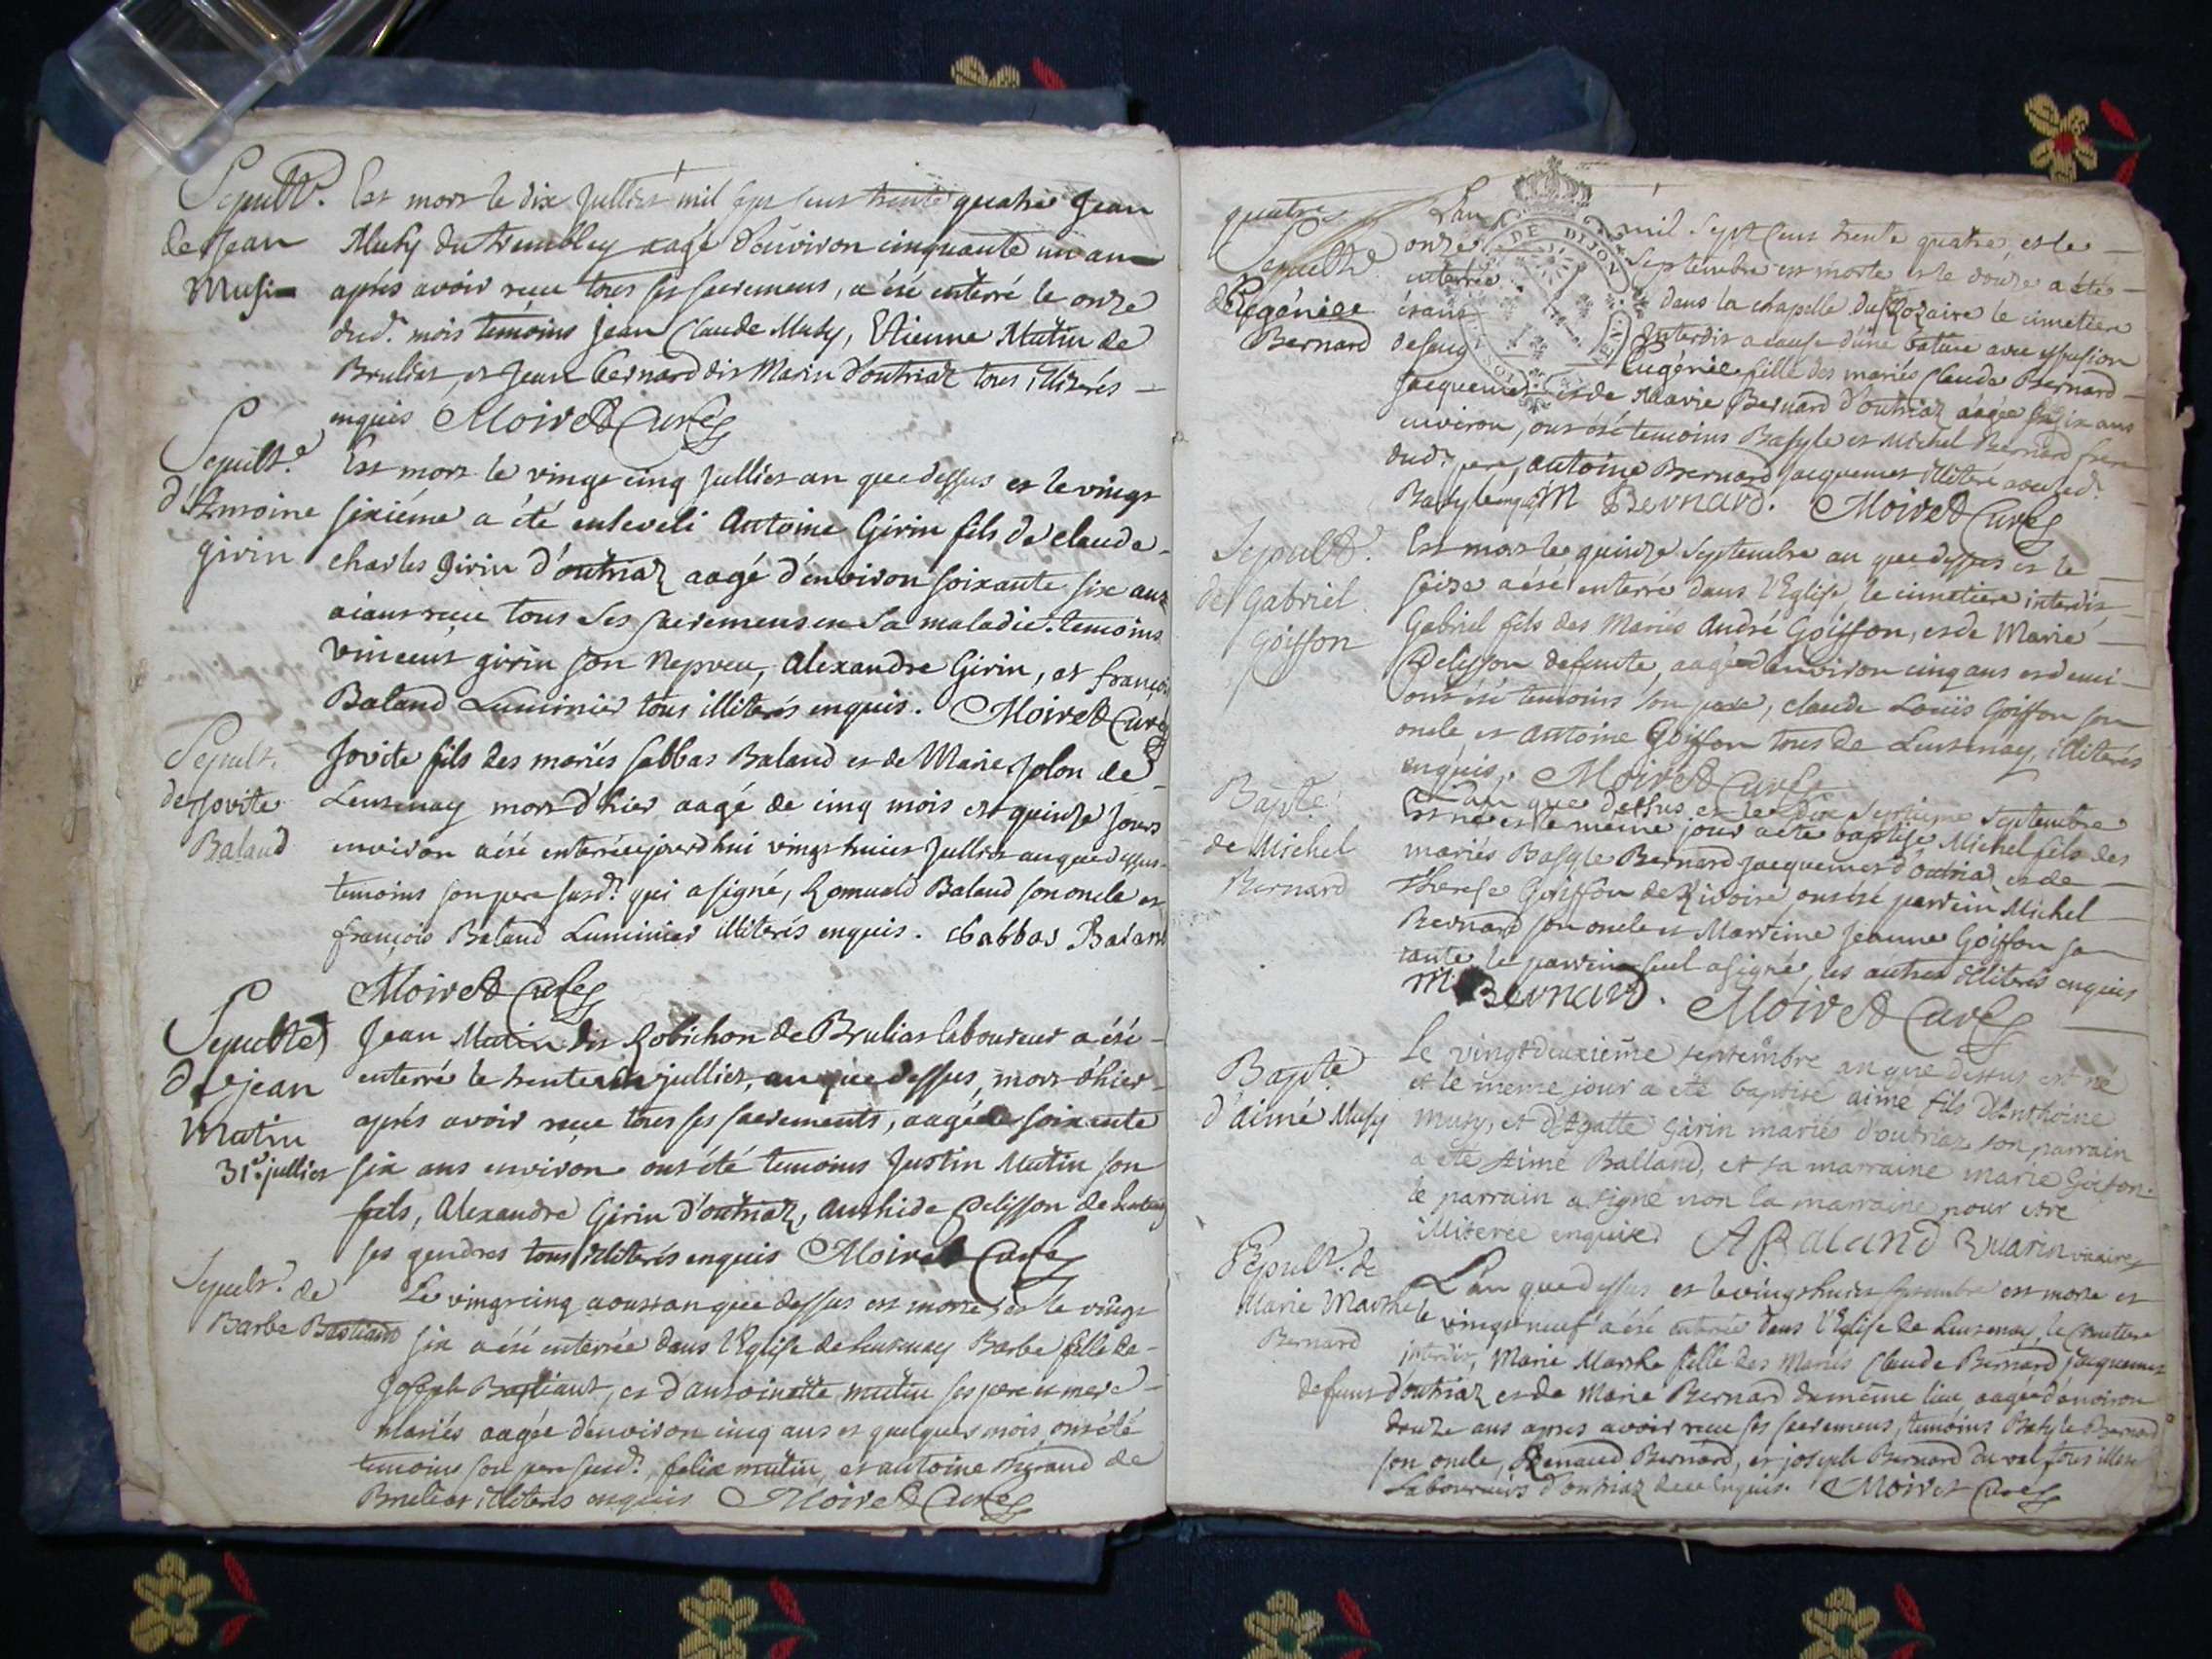 Sepult.e Est mort le dix Julliet mil sept cent trente quatre Jean
de Jean Musy du trembley aagé d'environ cinquante un an
Musi après avoir receu tous ses sacremens, a été enterré le onze
dud. mois temoins Jean Claude Musy, Etienne Mutin de
Brulias, et Jean Bernard dit Marin d'outriaz tous illiterés
enquis Moiret Curé
Sepult.e Est mort le vingt cinq Julliet an que dessus et le vingt
d'Antoine sixiéme a été enseveli Antoine Girin fils de claude
girin charles girin d'outriaz aagé d'environ soixante six ans
aiant receu tous ses sacremens en sa maladie. temoins
vincent girin son nepveu, Alexandre Girin, et françois
Baland Luminier tous illiterés enquis. Moiret Curé
Sepult. Jovite fils des mariés Sabbas Baland et de Marie Jolon de
de Jovite Leussenay mort d'hier aagé de cinq mois et quinze jours
Baland environ a été enterré aujourd'hui vingt huict Julliet an que dessus
temoins son pere susd.t qui a signé, Romuald Baland son oncle et
françois Baland Luminier illiterés enquis. Sabbas Baland
Moiret Curé
Sepult.e Jean Mutin dit Robichon de Brulias laboureur a été
de jean enterré le trente un julliet, an que dessus, mort d'hier
Mutin après avoir receu tous ses sacrements, aagé de soixante
31e. julliet six ans environ ont été temoins Justin Mutin son
fils, Alexandre Girin d'outriaz, Anthide Pelisson de
ses gendres tous illiterés enquis Moiret Curé
Sepult.e de Le vingt cinq aoust an que dessus est morte, et le vingt
Barbe Bastiant six a été enterrée dans l'Eglise de Leussenay Barbe fille de
Joseph Bastiant, et d'antoinette mutin ses pere et mere
Mariés aagée d'environ cinq ans et quelques mois, ont été
temoins son pere susd.t, felix mutin, et antoine de
Brulias illiterés enquis Moiret Curé
quatre L'an mil sept cent trente quatre, et le
Sepult.e onze Septembre est morte et le douze a été
d'Eugénie enterrée dans la chapelle du Rozaire le cimetiere
Bernard étant Interdit a cause d'une bature avec effusion
de sang Eugénie fille des mariés Claude Bernard
Jacquemet et de Marie Bernard d'outriaz aagée six ans
environ, ont été temoins Basyle et Michel Bernard frere
dud. pere, antoine Bernard Jacquemet illiteré avec led.
Basyle enquis M Bernard. Moiret Curé
Sepult.e Est mort le quinze Septembre an que dessus et le
de gabriel seize a été enterré dans l'Eglise, le cimetiere interdit
Goiffon Gabriel fils des Mariés André Goiffon, et de Marie
Pelisson defunte, aagé d'environ cinq ans et demi
ont été temoins son pere, claude Louïs Goiffon son
oncle et Antoine Goiffon tous de Leussenay, illiterés
enquis. Moiret Curé
Bapt.e L'an que dessus, et le dix Septieme Septembre
Est né et le méme jour a été baptisé Michel fils des
de Michel mariés Basyle Bernard jacquemet d'outriaz et de
Bernard Therese Goiffon de Rivoire ont été parrein Michel
Bernard son oncle et Marreine Jeanne Goiffon sa
tante, le parrein seul a signé, les autres illiterés enquis
M Bernard. Moiret Curé
Bapt.e Le vingt deuxieme septembre an que dessus est né
et le meme jour a été baptisé aimé fils d'Anthoine
d'aimé Musy Musy, et d'Agatte Girin mariés d'outriaz son parrain
a été Aimé Balland, et sa marraine marie Goifon.
le parrain a signé non la marraine pour etre
illiterée enquise A Baland vicaire
Sepult.e de L'an que dessus et le vingt huict septembre est morte et
Marie Marthe le vingt neuf a été enterrée dans l'Eglise de Leussenay, le Cimetiere
Bernard interdit, Marie Marthe fille des Mariés Claude Bernard jacquemet
defunt d'outriaz et de Marie Bernard du méme lieu, aagée d'environ
douze ans apres avoir receu ses sacremens, temoins Basyle Bernard
son oncle, Renaud Bernard, et joseph Bernard du val tous
Laboureurs d'outriaz enquis. Moiret Curé